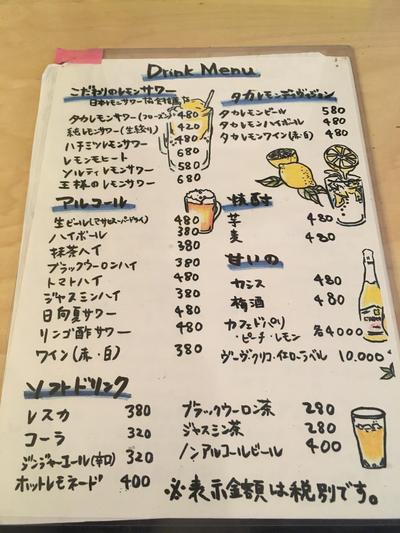 Drink Menu
こだわりのレモンサワー
日本レモンサワー協会
タカレモンサワー(フローズン) 480
純レモンサワー(生絞り) 420
ハチミツレモンサワー 480
レモンモヒート 680
ソルティレモンサワー 580
王様のレモンサワー 680
タカレモン
タカレモンビール 580
タカレモンハイボール 480
タカレモンワイン(赤・白) 480
アルコール
生ビール 480
ハイボール 380
抹茶ハイ 380
ブラックウーロンハイ 380
トマトハイ 480
ジャスミンハイ 380
日向夏サワー 480
リンゴ酢サワー 480
ワイン(赤・白) 380
焼酎
芋 480
麦 480
甘いの
カシス 480
梅酒 480
カフェドパリ
・ピーチ・レモン 各4000
ヴーヴ・クリコ・イエローラベル 10.000
ソフトドリンク
レスカ 380
コーラ 320
ジンジャーエール(辛口) 320
ホットレモネード 400
ブラックウーロン茶 280
ジャスミン茶 280
ノンアルコールビール 400
※表示金額は税別です。